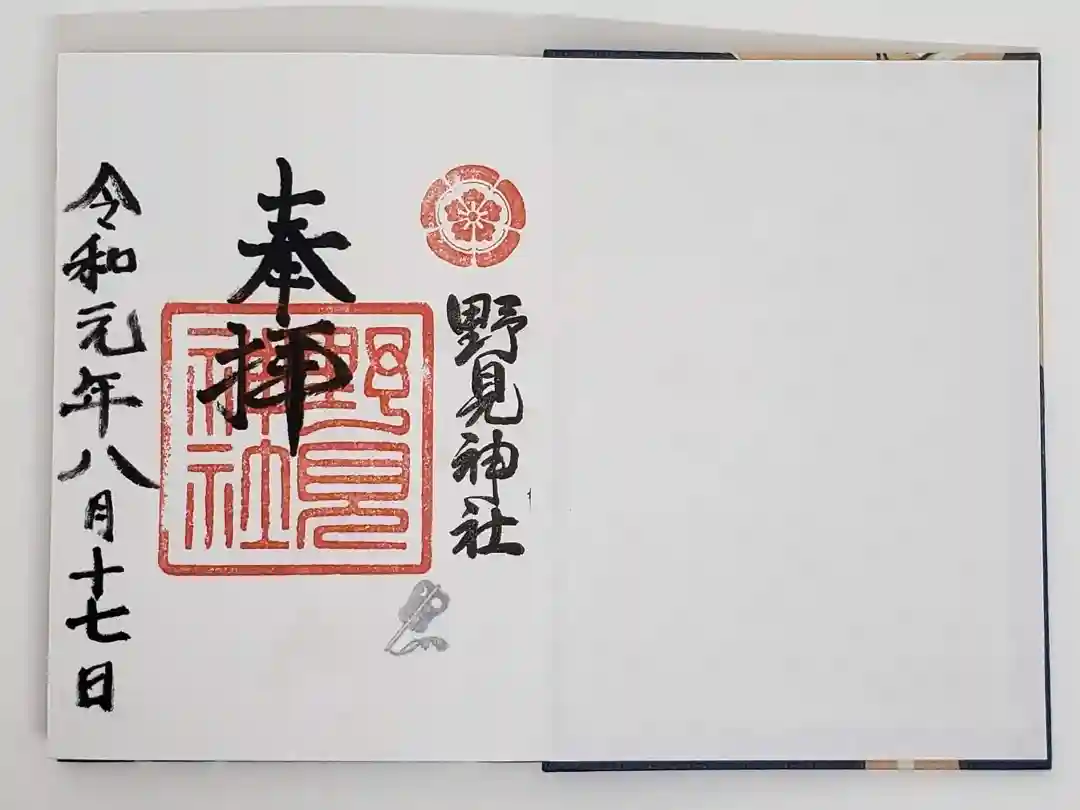 野見神社
奉拝
野見
神社
令和元年八月十七日